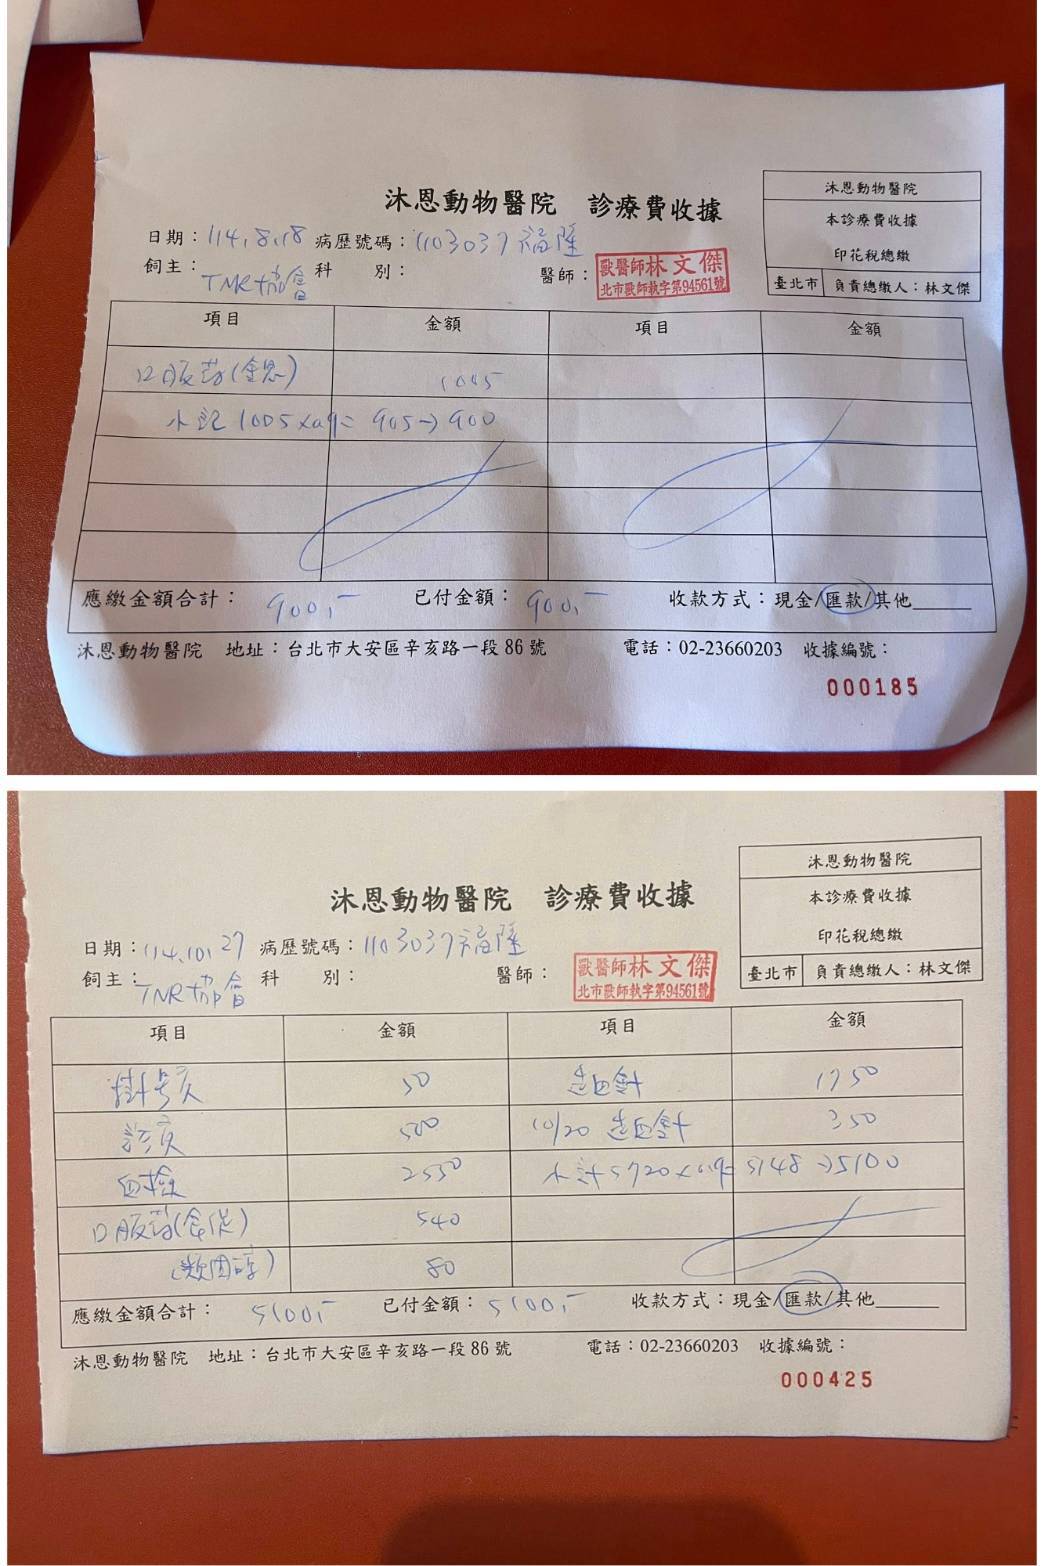 沐恩動物醫院 診療費收據
沐恩動物醫院
本診療費收據
印花稅總繳
臺北市 負責總繳人：林文傑
日期：114.8.18 病歷號碼：1103037福隆
飼主：TNR協會 科 別： 醫師：
獸醫師林文傑
北市獸師執字第94561號
項目 金額 項目 金額
口服药( ) 1005
小記 1005×0.9= 905→900
應繳金額合計：900,- 已付金額：900,- 收款方式：現金/匯款/其他
沐恩動物醫院 地址：台北市大安區辛亥路一段86號 電話：02-23660203 收據編號：
000185
沐恩動物醫院 診療費收據
沐恩動物醫院
本診療費收據
印花稅總繳
臺北市 負責總繳人：林文傑
日期：114.10.27 病歷號碼：1103037福隆
飼主：TNR協會 科 別： 醫師：
獸醫師林文傑
北市獸師執字第94561號
項目 金額 項目 金額
掛号費 50 造血針 1750
診費 500 10/20 造血針 350
血檢 2550 小計5720×0.9= 5148→5100
口服药( ) 540
(類固醇) 80
應繳金額合計：5100,- 已付金額：5100,- 收款方式：現金/匯款/其他
沐恩動物醫院 地址：台北市大安區辛亥路一段86號 電話：02-23660203 收據編號：
000425